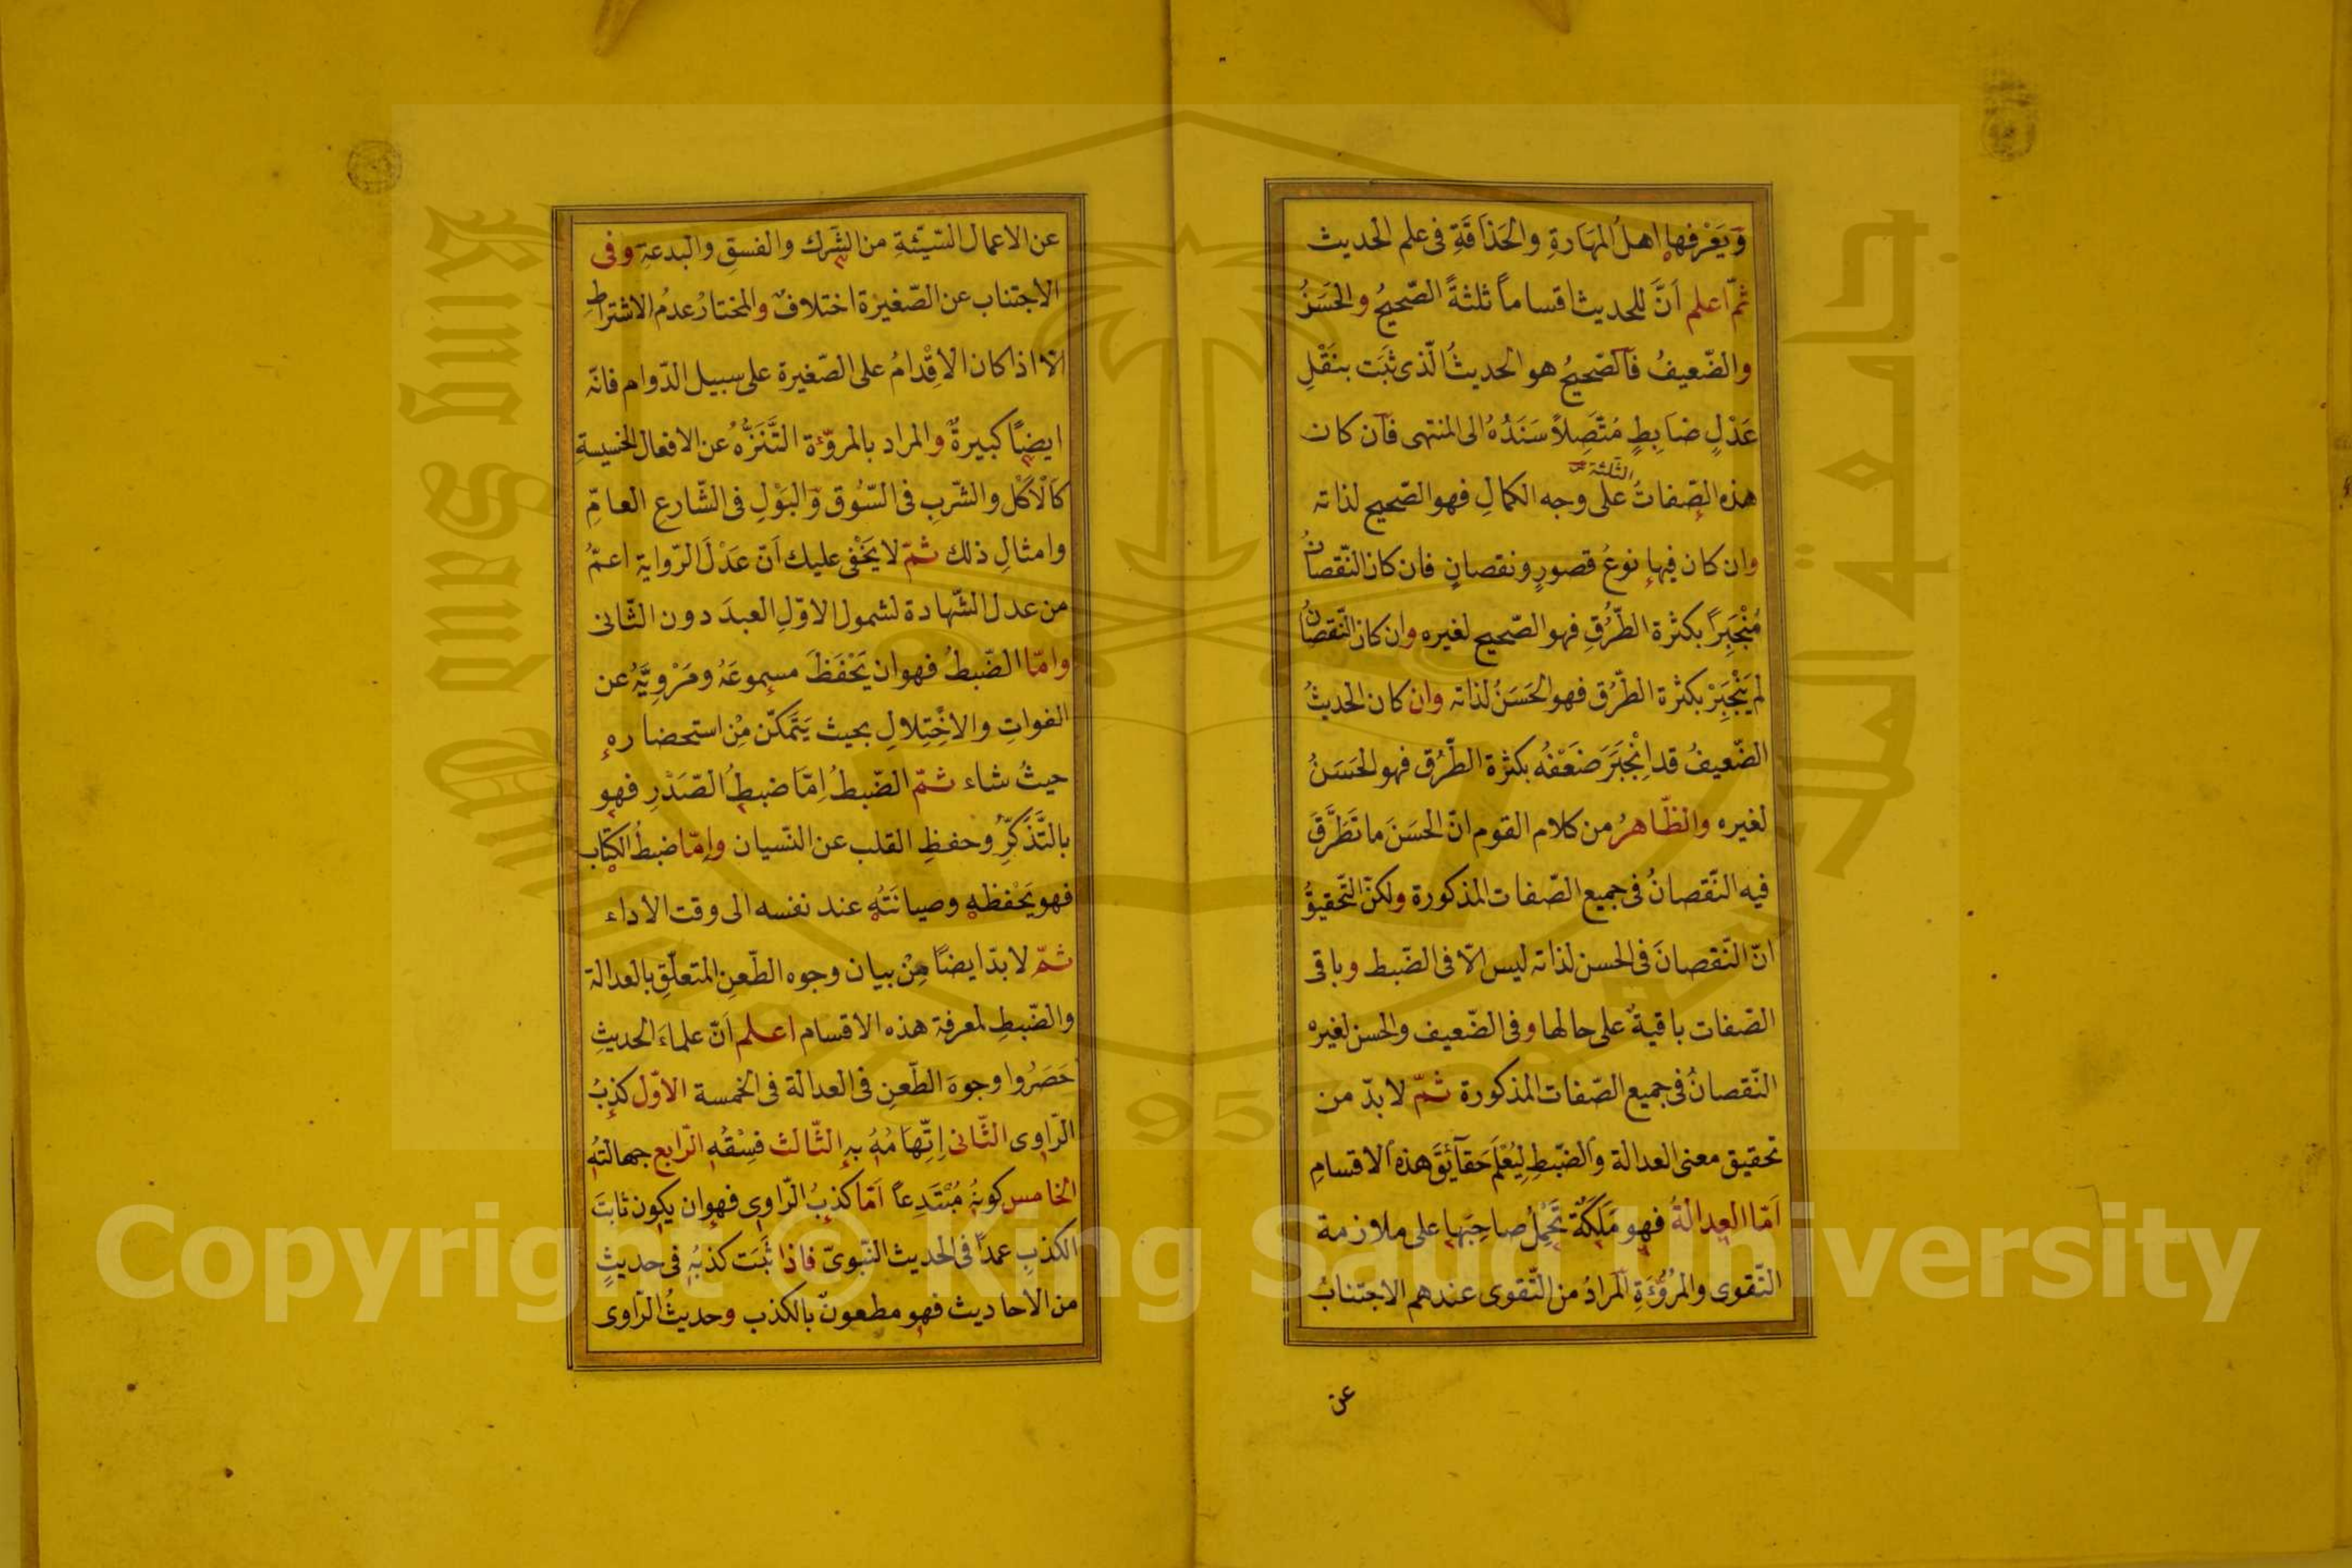 وَيَعْرفها اهلُ المَهَارةِ والحَذاقَةِ فى علم الحديث
ثمّ اعلم اَنَّ للحديث اقساماً ثلثةً الصّحيحُ والحَسَنُ
والضّعيفُ فآلصّحيحُ هو الحديثُ الّذى ثَبَت بنَقْلِ
عَدْلٍ ضابِطٍ مُتّصِلاً سَنَدُهُ الى المنتهى فآن كان
هذه الصّفاتُ الثّلثة على وجه الكمالِ فهو الصّحيح لذاته
وان كان فيها نوعُ قصورٍ ونقصانٍ فان كان النّقصانُ
مُنْجَبِراً بكثرة الطّرُقِ فهو الصّحيح لغيره وان كان النّقصانُ
لم يَنْجَبِرْ بكثرة الطّرُق فهو الحَسَنُ لذاته وان كان الحديثُ
الضّعيفُ قد اِنْجَبَرَ ضَعْفُه بكثرة الطّرُق فهو الحَسَنُ
لغيره والظّاهرُ من كلام القوم انّ الحسَنَ ما تَطَرَّقَ
فيه النّقصانُ فى جميع الصّفات المذكورة ولكنّ التّحقيقُ
انّ النّقصانَ فى الحسن لذاته ليس الاّ فى الضّبط وباقى
الصّفات باقيةٌ على حالها وفى الضّعيف والحسن لغيره
النّقصانُ فى جميع الصّفات المذكورة ثمّ لا بدّ من
تحقيق معنى العدالة والضّبطِ لِيُعْلَمَ حَقآئقَ هذه الاقسامِ
اَمّا العدالةُ فهو مَلَكَةٌ تَحْمِلُ صاحِبَها على ملازمة
التّقوى والمُرُوَّءَةِ آلمرادُ من التّقوى عندهم الاجتنابُ
عن
عن الاعمال السّيّئةِ من الشّرك والفسقِ والبدعةِ وفى
الاجتناب عن الصّغيرة اختلافٌ والمختارُ عدمُ الاشتراطِ
الاّ اذا كان الاِقْدامُ على الصّغيرة على سبيل الدّوام فانّه
ايضاً كبيرةٌ والمراد بالمروّءة التَّنَزُّهُ عن الافعال الخسيسةِ
كالاَكْل والشّربِ فى السّوُق وَالبَوْلِ فى الشّارع العامِّ
وامثالِ ذلك ثمّ لا يَخْفى عليك اَنّ عَدْلَ الرّوايةِ اعمُّ
من عدل الشّهادة لشمول الاوّلِ العبدَ دون الثّانى
وامّا الضّبطُ فهو ان يَحْفَظَ مسموعَهُ ومَرْوِيَّهُ عن
الفواتِ والاخْتِلالِ بحيث يَتَمكّن مِن استحضاره
حيثُ شاء ثمّ الضّبطُ اِمّا ضبطُ الصّدْرِ فهو
بالتَّذَكّرِ وحفظِ القلب عن النّسيان واِمّا ضبطُ الكتاب
فهو يَحْفظه وصيانَتُه عند نفسه الى وقت الاداء
ثمّ لا بدّ ايضاً مِنْ بيان وجوه الطّعنِ المتعلّقِ بالعدالة
والضّبطِ لمعرفة هذه الاقسام اعلم اَنّ علماءَ الحديثِ
حَصَرُوا وجوهَ الطّعنِ فى العدالة فى الخمسة الاوّل كذبُ
الرّاوى الثّانى اِتّهامُهُ به الثّالث فِسْقُه الرّابع جهالتُه
الخامس كونهُ مُبْتَدِعاً اَمّا كذبُ الرّاوى فهو ان يكون ثابتَ
الكذبِ عمداً فى الحديث النّبوىّ فاذا ثَبَت كذبُه فى حديثٍ
من الاحاديث فهو مطعونٌ بالكذب وحديثُ الرّاوى
Copyright © King Saud University
1957